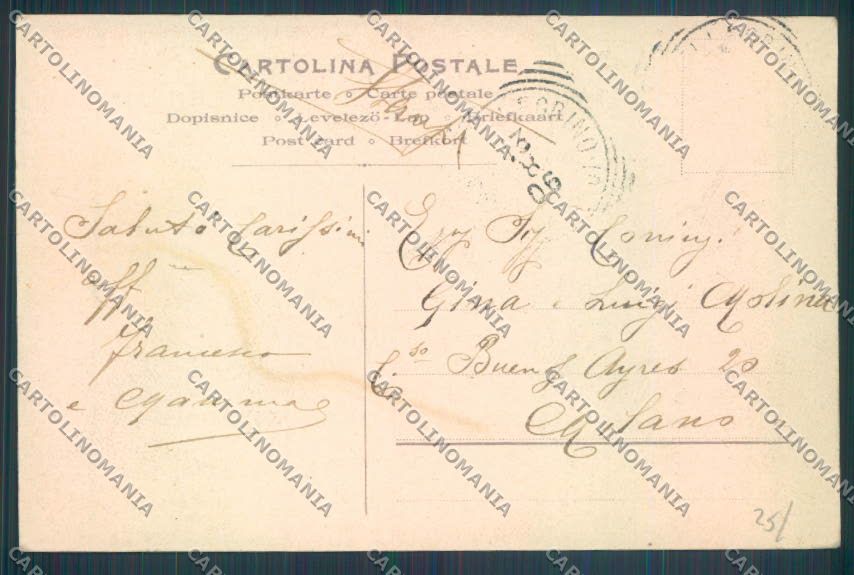 CARTOLINA POSTALE
Postkarte ∘ Carte postale
Dopisnice ∘ Levelező-Lap ∘ Briefkaart
Post card ∘ Brefkort
Saluto Carissimi
aff
Francesco
e Mamma
Gina e Luigi Molina
C.so Buenos Ayres 20
Milano
25/
CARTOLINOMANIA